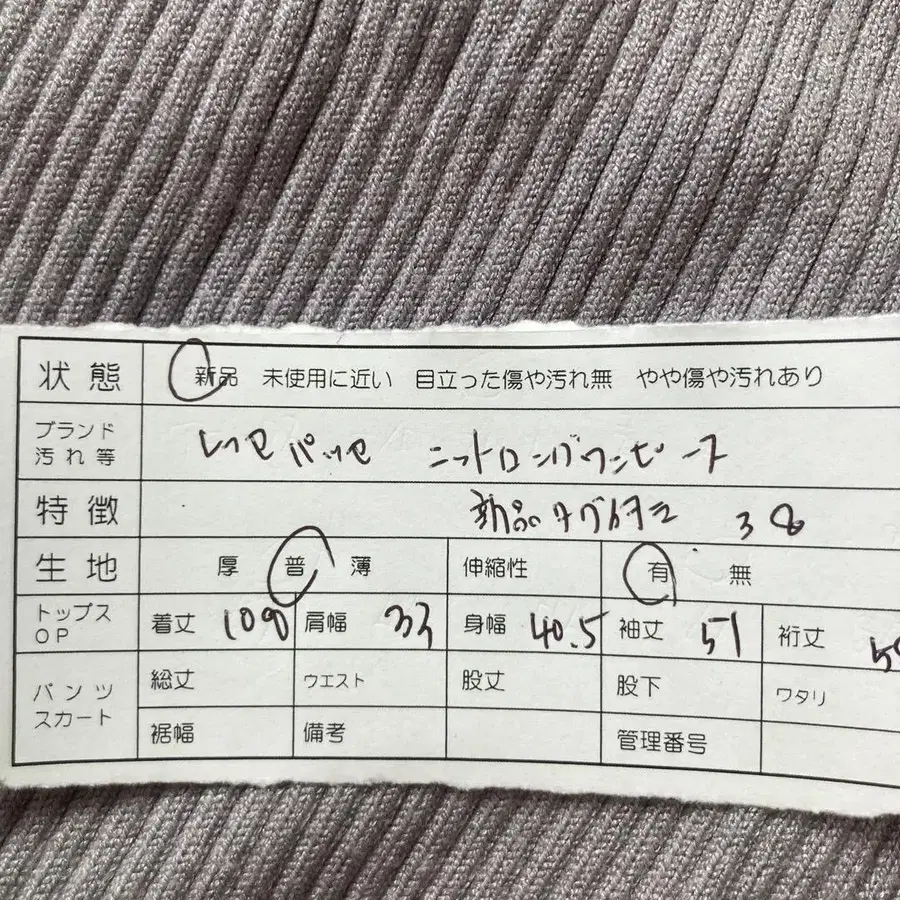 状態 新品 未使用に近い 目立った傷や汚れ無 やや傷や汚れあり
ブランド 汚れ等 レッセパッセ ニットロングワンピース
特徴 新品タグ付き 38
生地 厚 普 薄 伸縮性 有 無
トップス OP 着丈 108 肩幅 33 身幅 40.5 袖丈 51 裄丈
パンツ スカート 総丈 ウエスト 股丈 股下 ワタリ
裾幅 備考 管理番号